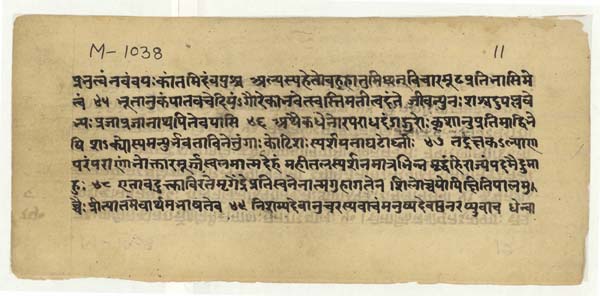 M-1038 11
प्रभुत्वं नवं वयः कांतमिदं वपुश्च अल्पस्य हेतोर्बहु हातुमिच्छन्विचारमूढः प्रतिभासि मे
त्वं ४५ भूतानुकंपा तव चेदियं गौरेका भवेत्स्वस्तिमती त्वदंते जीवन्पुनः शश्वदुपप्लवे
भ्यः प्रजाः प्रजानाथ पितेव पासि ४६ अथैकधेनोरपराधचंडाद्गुरोः कृशानुप्रतिमाद्बिभे
षि शक्योस्य मन्युर्भवता विनेतुं गाः कोटिशः स्पर्शयता घटोध्नीः ४७ तद्रक्ष कल्याण
परंपराणां भोक्तारमूर्जस्वलमात्मदेहं महीतलस्पर्शनमात्रभिन्नमृद्धं हि राज्यं पदमैंद्रमा
हुः ४८ एतावदुक्त्वा विरते मृगेंद्रे प्रतिस्वनेनास्य गुहागतेन शिलोच्चयोपि क्षितिपालमु
च्चैः प्रीत्या तमेवार्थमभाषतेव ४९ निशम्य देवानुचरस्य वाचं मनुष्यदेवः पुनरप्युवाच धेन्वा